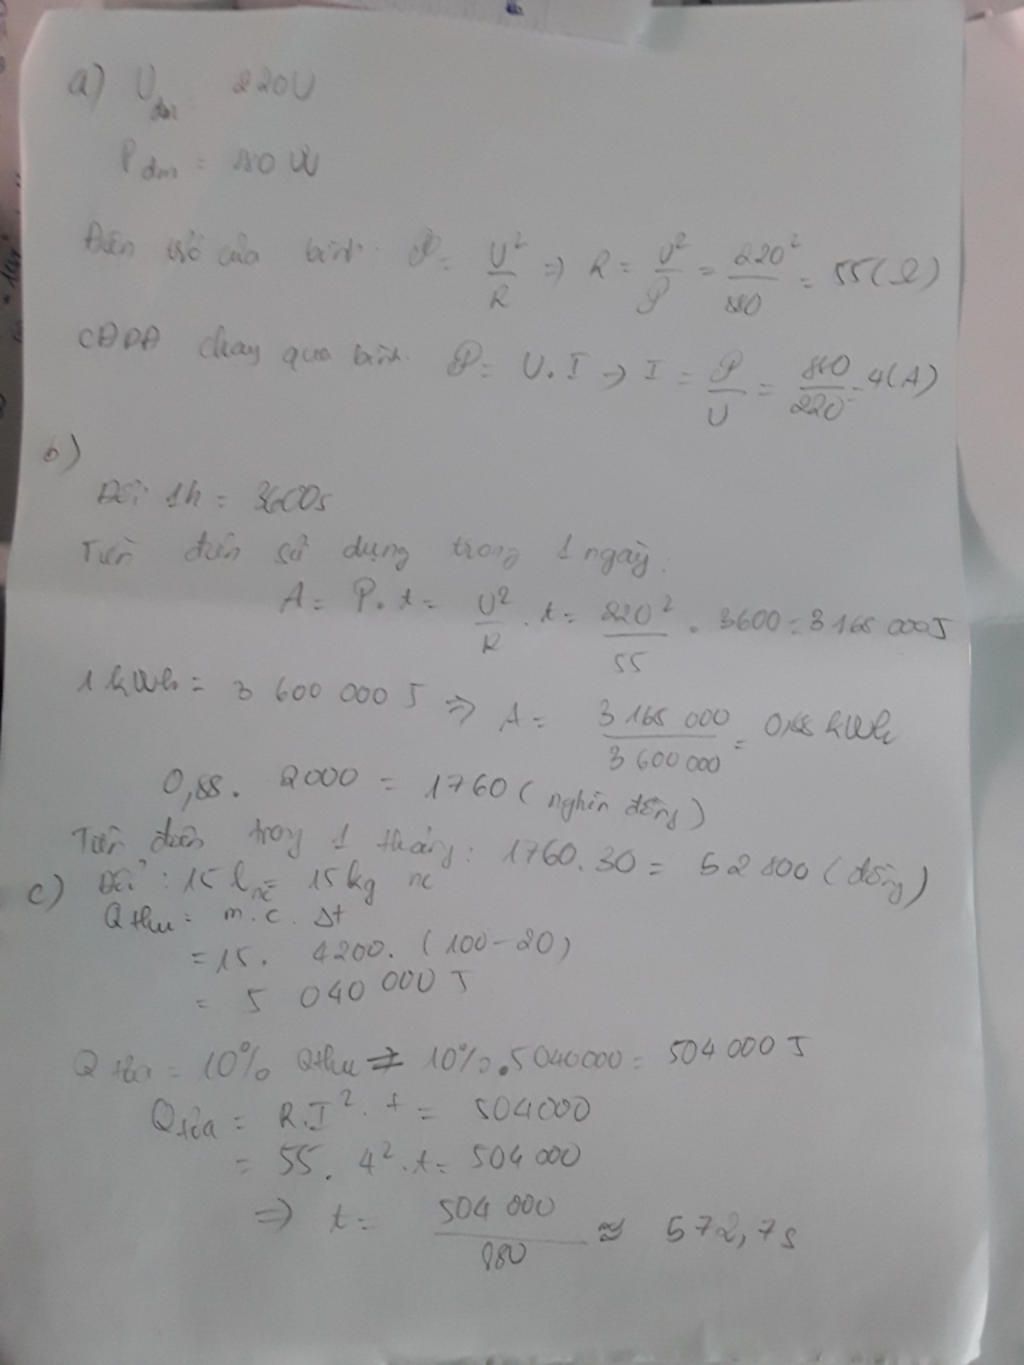 a) U đm 220U
P đm = 880 W
Điện trở của bình: P = U²/R => R = U²/P = 220²/880 = 55 (Ω)
CĐDĐ chạy qua bình. P = U.I → I = P/U = 880/220 = 4(A)
b)
Đổi 1h = 3600s
Tiền điện sử dụng trong 1 ngày:
A = P.t = U²/R . t = 220²/55 . 3600 = 3168 000J
1 kWh = 3 600 000 J => A = 3 168 000/3 600 000 = 0,88 kWh
0,88. 2000 = 1760 (nghìn đồng)
Tiền điện trong 1 tháng: 1760.30 = 52 800 (đồng)
c) Đổi: 15 l nc = 15 kg nc
Q thu = m.c. Δt
= 15. 4200. (100-20)
= 5 040 000 J
Q tỏa = 10% Q thu = 10%.5040000 = 504 000 J
Q tỏa = R.I². t = 504000
= 55. 4².t = 504 000
=> t = 504 000/880 ≈ 572,7s